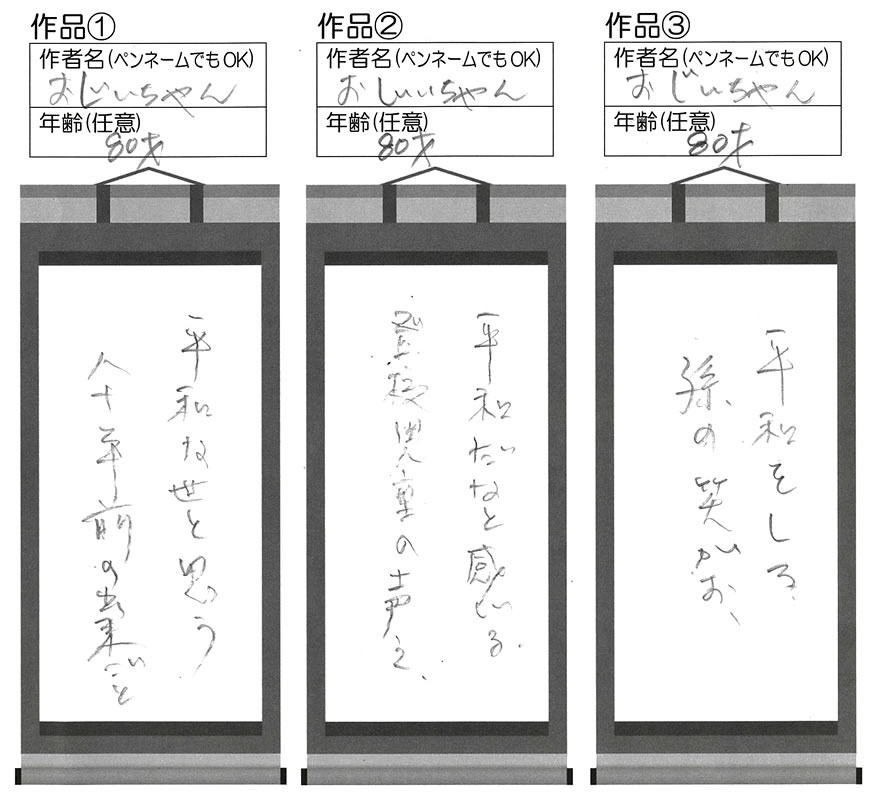 作品①
作者名(ペンネームでもOK)
おじいちゃん
年齢(任意)
80才
平和な世と思う
八十年前の出来ごと
作品②
作者名(ペンネームでもOK)
おじいちゃん
年齢(任意)
80才
平和だなと感じる
登校児童の声に、
作品③
作者名(ペンネームでもOK)
おじいちゃん
年齢(任意)
80才
平和をしる
孫の笑がお、